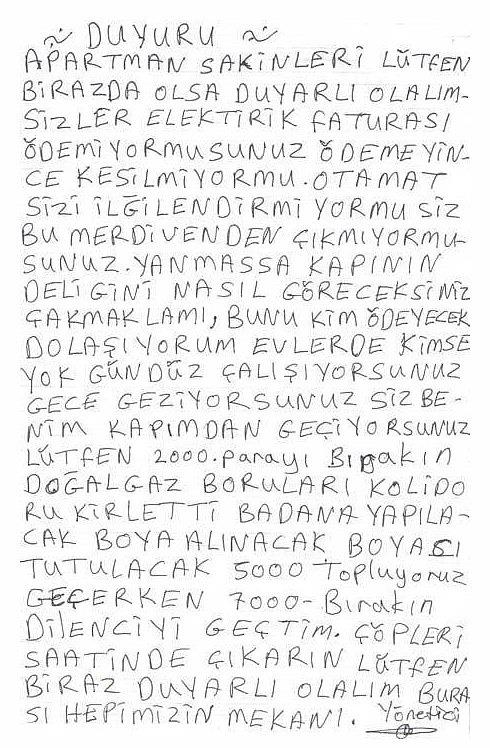 ~ DUYURU ~
APARTMAN SAKİNLERİ LÜTFEN
BİRAZDA OLSA DUYARLI OLALIM-
SİZLER ELEKTİRİK FATURASI
ÖDEMİYORMUSUNUZ ÖDEMEYİN-
CE KESİLMİYORMU. OTAMAT
SİZİ İLGİLENDİRMİYORMU SİZ
BU MERDİVENDEN ÇIKMIYORMU-
SUNUZ. YANMASSA KAPININ
DELİGİNİ NASIL GÖRECEKSİNİZ
ÇAKMAKLAMI, BUNU KİM ÖDEYECEK
DOLAŞIYORUM EVLERDE KİMSE
YOK GÜNDÜZ ÇALIŞIYORSUNUZ
GECE GEZİYORSUNUZ SİZ BE-
NİM KAPIMDAN GEÇİYORSUNUZ
LÜTFEN 2000. parayı Bırakın
DOĞALGAZ BORULARI KOLİDO
RU KİRLETTİ BADANA YAPILA-
CAK BOYA ALINACAK BOYACI
TUTULACAK 5000 Topluyoruz
GEÇERKEN 7000- Bırakın
DİLENCİYİ GEÇTİM. ÇÖPLERİ
SAATİNDE ÇIKARIN LÜTFEN
BİRAZ DUYARLI OLALIM BURA
SI HEPİMİZİN MEKANI. Yönetici